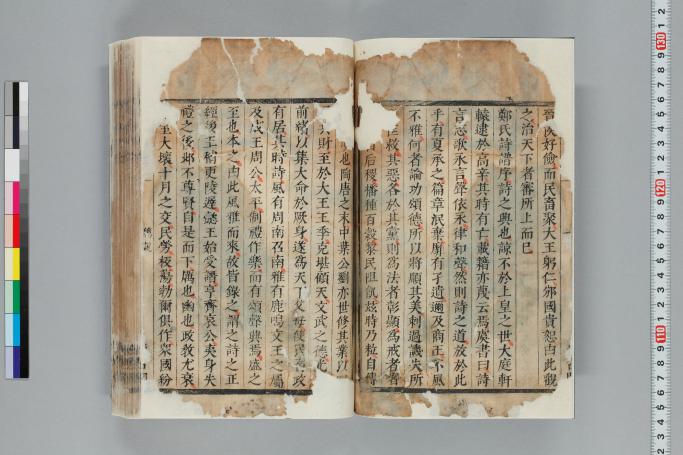 晉侯好儉而民畜聚大王躬仁邠國貴恕由此觀
之治天下者審所上而已
鄭氏詩譜序詩之興也諒不於上皇之世大庭軒
轅逮於高辛其時有亡載籍亦蔑云焉虞書曰詩
言志歌永言聲依永律和聲然則詩之道放於此
乎有夏承之篇章泯棄靡有孑遺邇及商王不風
不雅何者論功頌德所以將順其美刺過譏失所
救其惡各於其黨則為法者彰顯為戒者著
后稷播種百穀黎民阻飢茲時乃粒自傳
也陶唐之末中葉公劉亦世修其業以
其財至於大王王季克堪顧天文武之德光
前緒以集大命於厥身遂為天下父母使民有政
有居其時詩風有周南召南雅有鹿鳴文王之屬
及成王周公太平制禮作樂而有頌聲興焉盛之
至也本之由此風雅而來故皆錄之謂之詩之正
經後王稍更陵遲懿王始受譖亨齊哀公夷身失
禮之後邶不尊賢自是而下厲也幽也政教尤衰
至大壞十月之交民勞板蕩勃爾俱作眾國紛